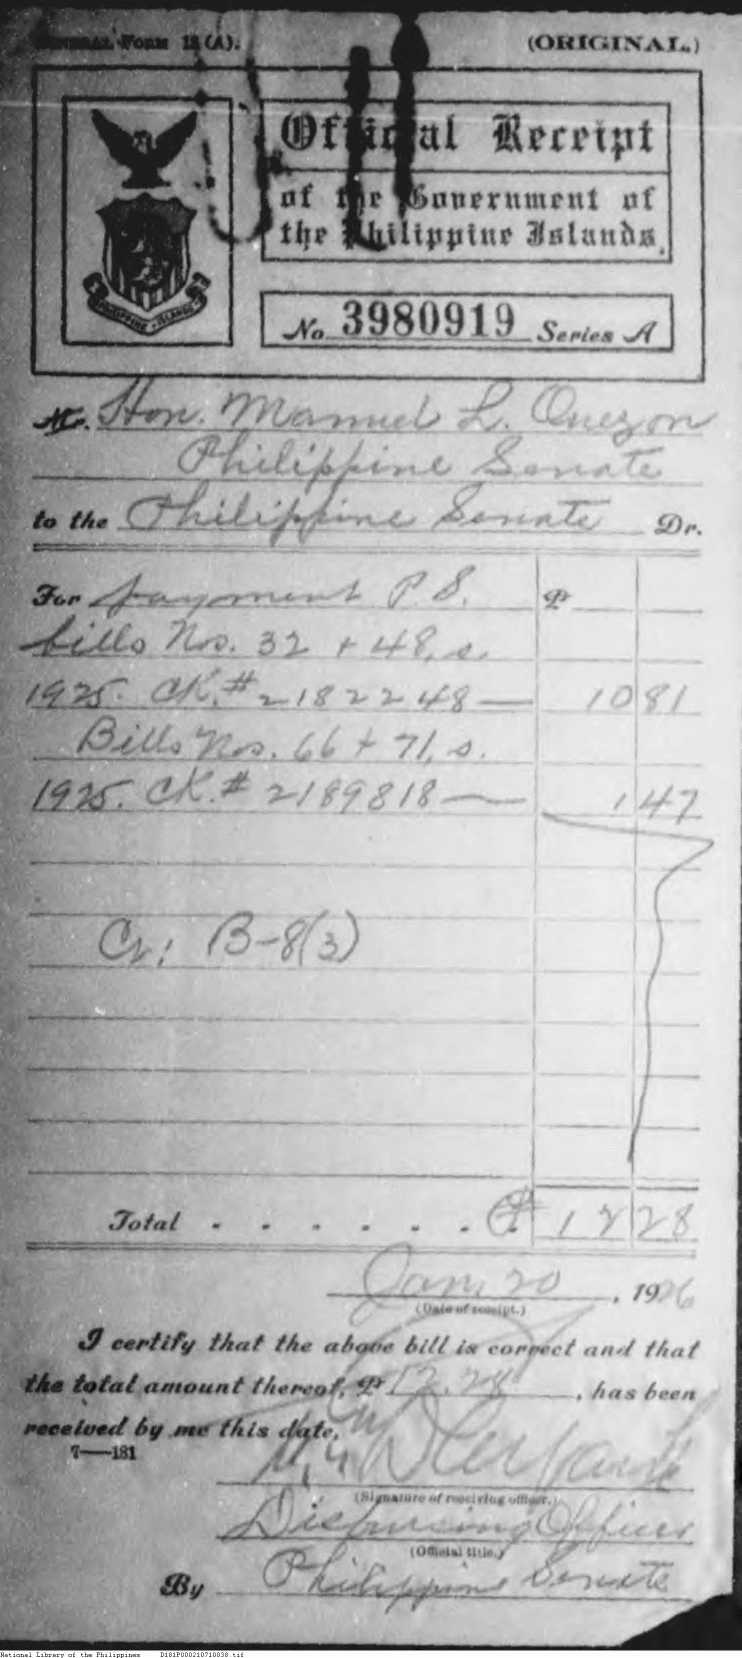 GENERAL FORM 13 (A).
(ORIGINAL.)
Official Receipt
of the Government of
the Philippine Islands.
PHILIPPINE ISLANDS
No. 3980919 Series A
Mr. Hon. Manuel L. Quezon
Philippine Senate
to the Philippine Senate Dr.
For payment P.S. ₱
bills Nos. 32 + 48, s.
1925. CK. # 2182248 — 10 81
Bills Nos. 66 + 71, s.
1925. CK. # 2189818 — 1 47
Cr: B-8(3)
Total . . . . . . ₱ 12 28
Jan. 20, 1926
(Date of receipt.)
I certify that the above bill is correct and that
the total amount thereof, ₱ 12.28, has been
received by me this date,
7—181
(Signature of receiving officer.)
Disbursing Officer
(Official title.)
By Philippine Senate
National Library of the Philippines D181P000210710038.tif